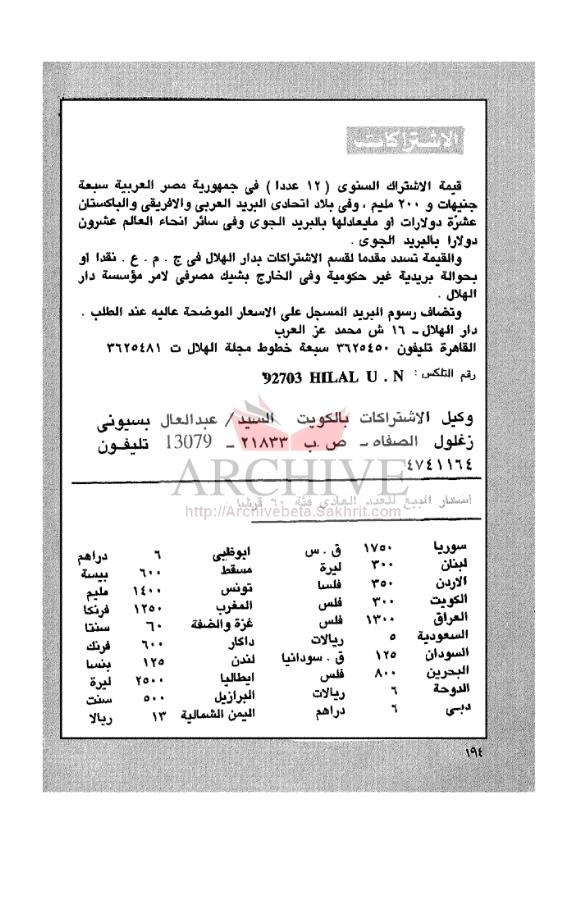 الاشتراكات
قيمة الاشتراك السنوى ( ١٢ عددا ) فى جمهورية مصر العربية سبعة
جنيهات و ٢٠٠ مليم ، وفى بلاد اتحادى البريد العربى والافريقى والباكستان
عشرة دولارات او مايعادلها بالبريد الجوى وفى سائر انحاء العالم عشرون
دولارا بالبريد الجوى .
والقيمة تسدد مقدما لقسم الاشتراكات بدار الهلال فى ج . م . ع . نقدا او
بحوالة بريدية غير حكومية وفى الخارج بشيك مصرفى لامر مؤسسة دار
الهلال .
وتضاف رسوم البريد المسجل على الاسعار الموضحة عاليه عند الطلب .
دار الهلال ـ ١٦ ش محمد عز العرب
القاهرة تليفون ٣٦٢٥٤٥٠ سبعة خطوط مجلة الهلال ت ٣٦٢٥٤٨١
رقم التلكس : 92703 HILAL U . N
وكيل الاشتراكات بالكويت السيد / عبدالعال بسيونى
زغلول الصفاه ـ ص . ب ٢١٨٣٣ ـ 13079 تليفون
٤٧٤١١٦٤
ARCHIVE
اسعار البيع للعدد العادى فئة ٦٠ قرشا
http://Archivebeta.Sakhrit.com
سوريا ١٧٥٠ ق . س ابوظبى ٦ دراهم
لبنان ٣٠٠ ليرة مسقط ٦٠٠ بيسة
الاردن ٣٥٠ فلسا تونس ١٤٠٠ مليم
الكويت ٣٠٠ فلس المغرب ١٢٥٠ فرنكا
العراق ١٣٠٠ فلس غزة والضفة ٦٠ سنتا
السعودية ٥ ريالات داكار ٦٠٠ فرنك
السودان ١٢٥ ق . سودانيا لندن ١٢٥ بنسا
البحرين ٨٠٠ فلس ايطاليا ٢٥٠٠ ليرة
الدوحة ٦ ريالات البرازيل ٥٠٠ سنت
دبى ٦ دراهم اليمن الشمالية ١٣ ريالا
١٩٤